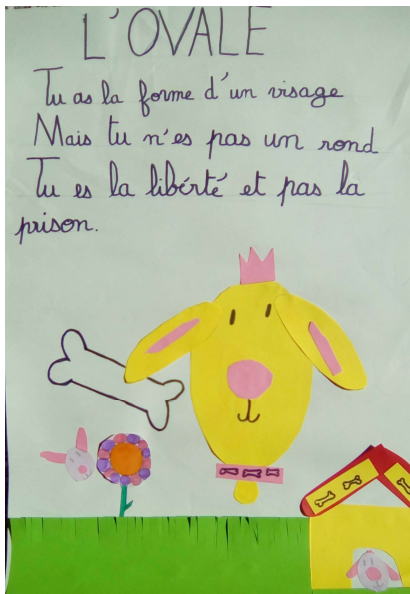 L'OVALE
Tu as la forme d'un visage
Mais tu n'es pas un rond
Tu es la libérté et pas la
prison.